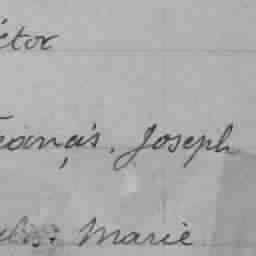 étor
França's, Joseph
Marie